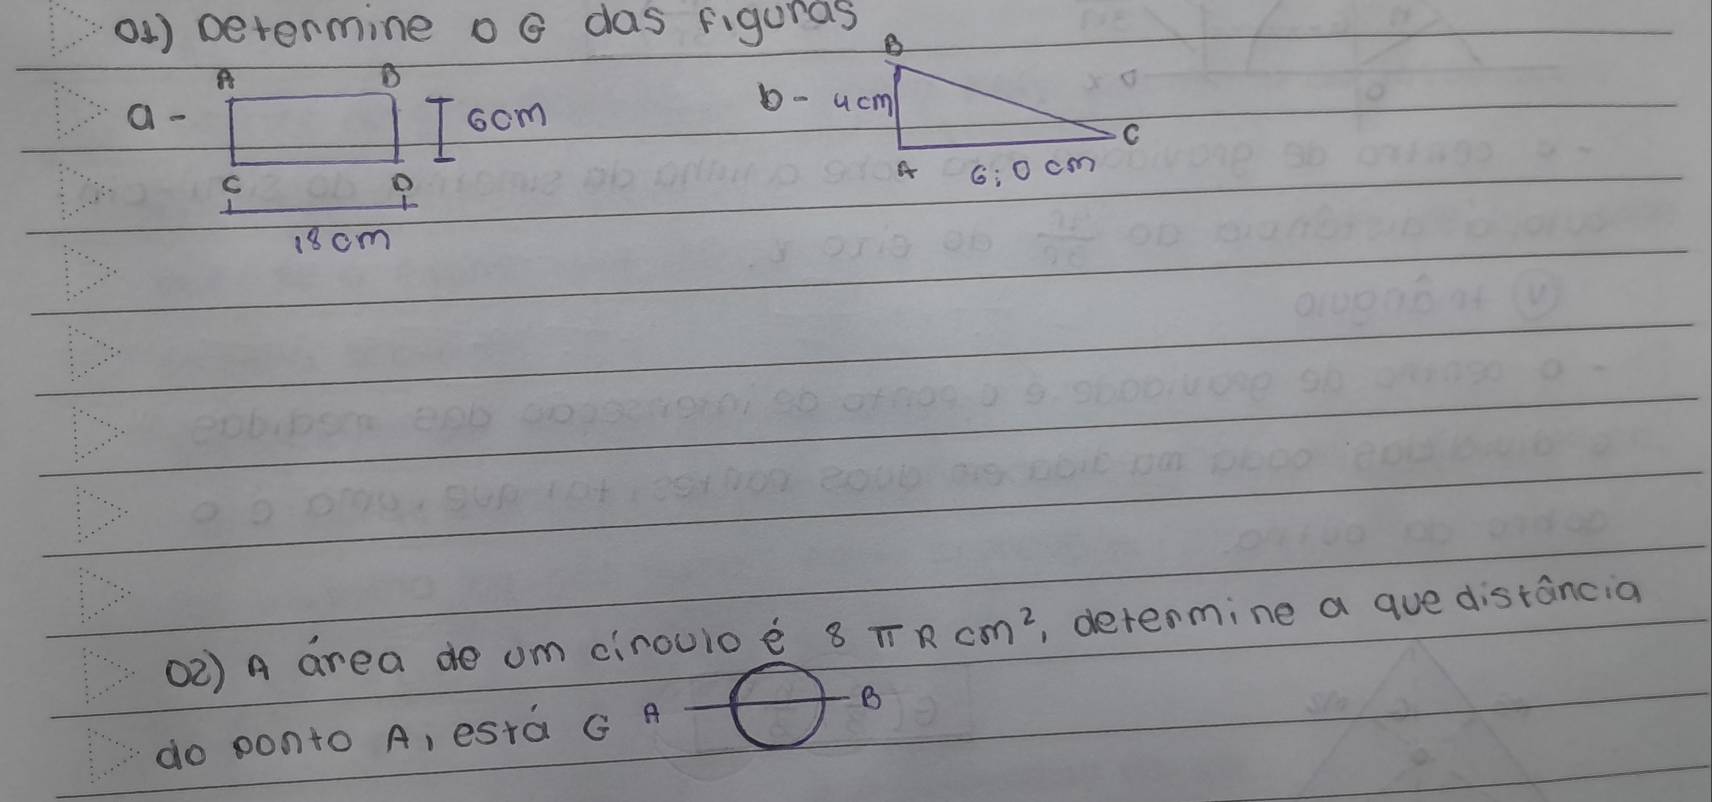 01) Determine o G das figuras
A B
a - 6cm
C D
18cm
B
b - 4cm
C
A 6;0 cm
02) A área de um círculo é 8 π R cm², determine a que distância
do ponto A, está G A B